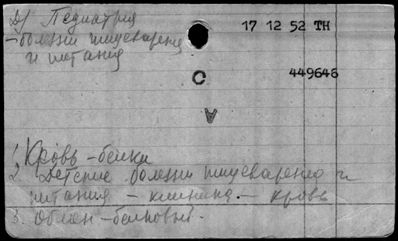 Д/ Педиатрия
17 12 52 TH
- болезни пищеварения
и питания
449646
C
A
1. Кровь - белки
2. Детские болезни пищеварения и
питания - клиника. - кровь
3. Обмен - белковый.